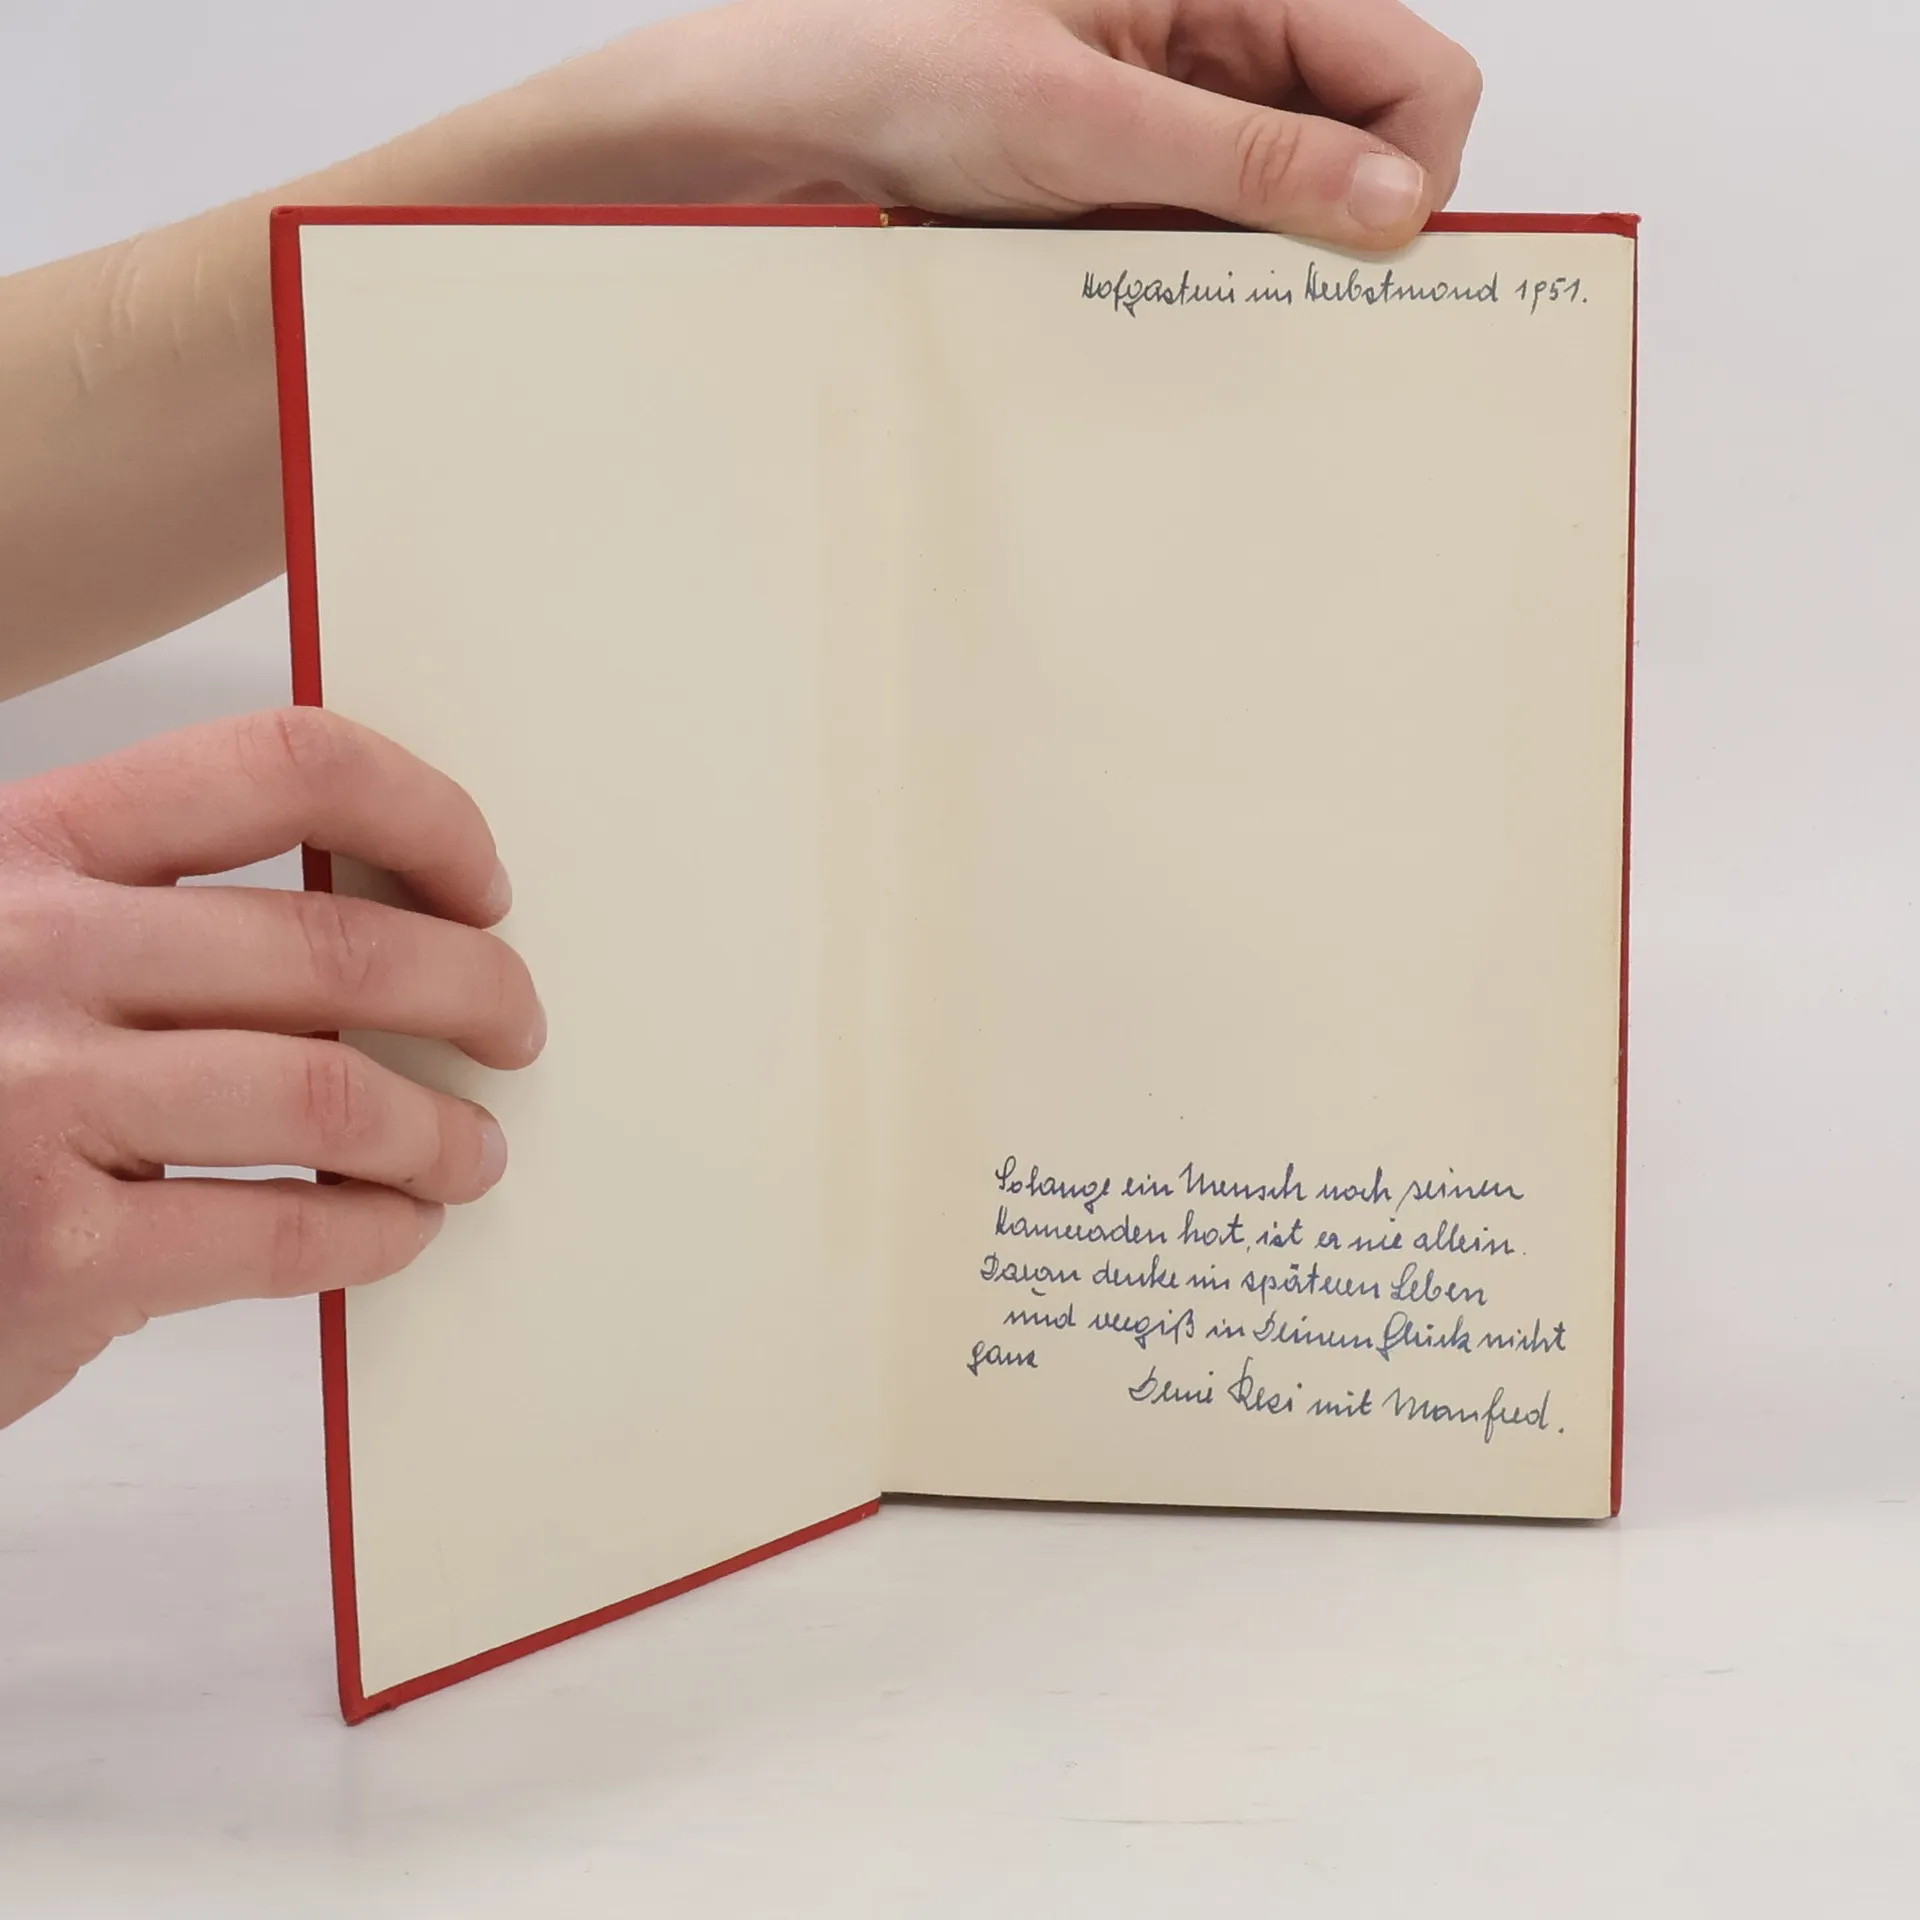 Hofgastein im Herbstmond 1951.
Solange ein Mensch noch seinen
Kameraden hat, ist er nie allein.
Daran denke im späteren Leben
und vergiß in Deinem Glück nicht
ganz
Deine Resi mit Manfred.